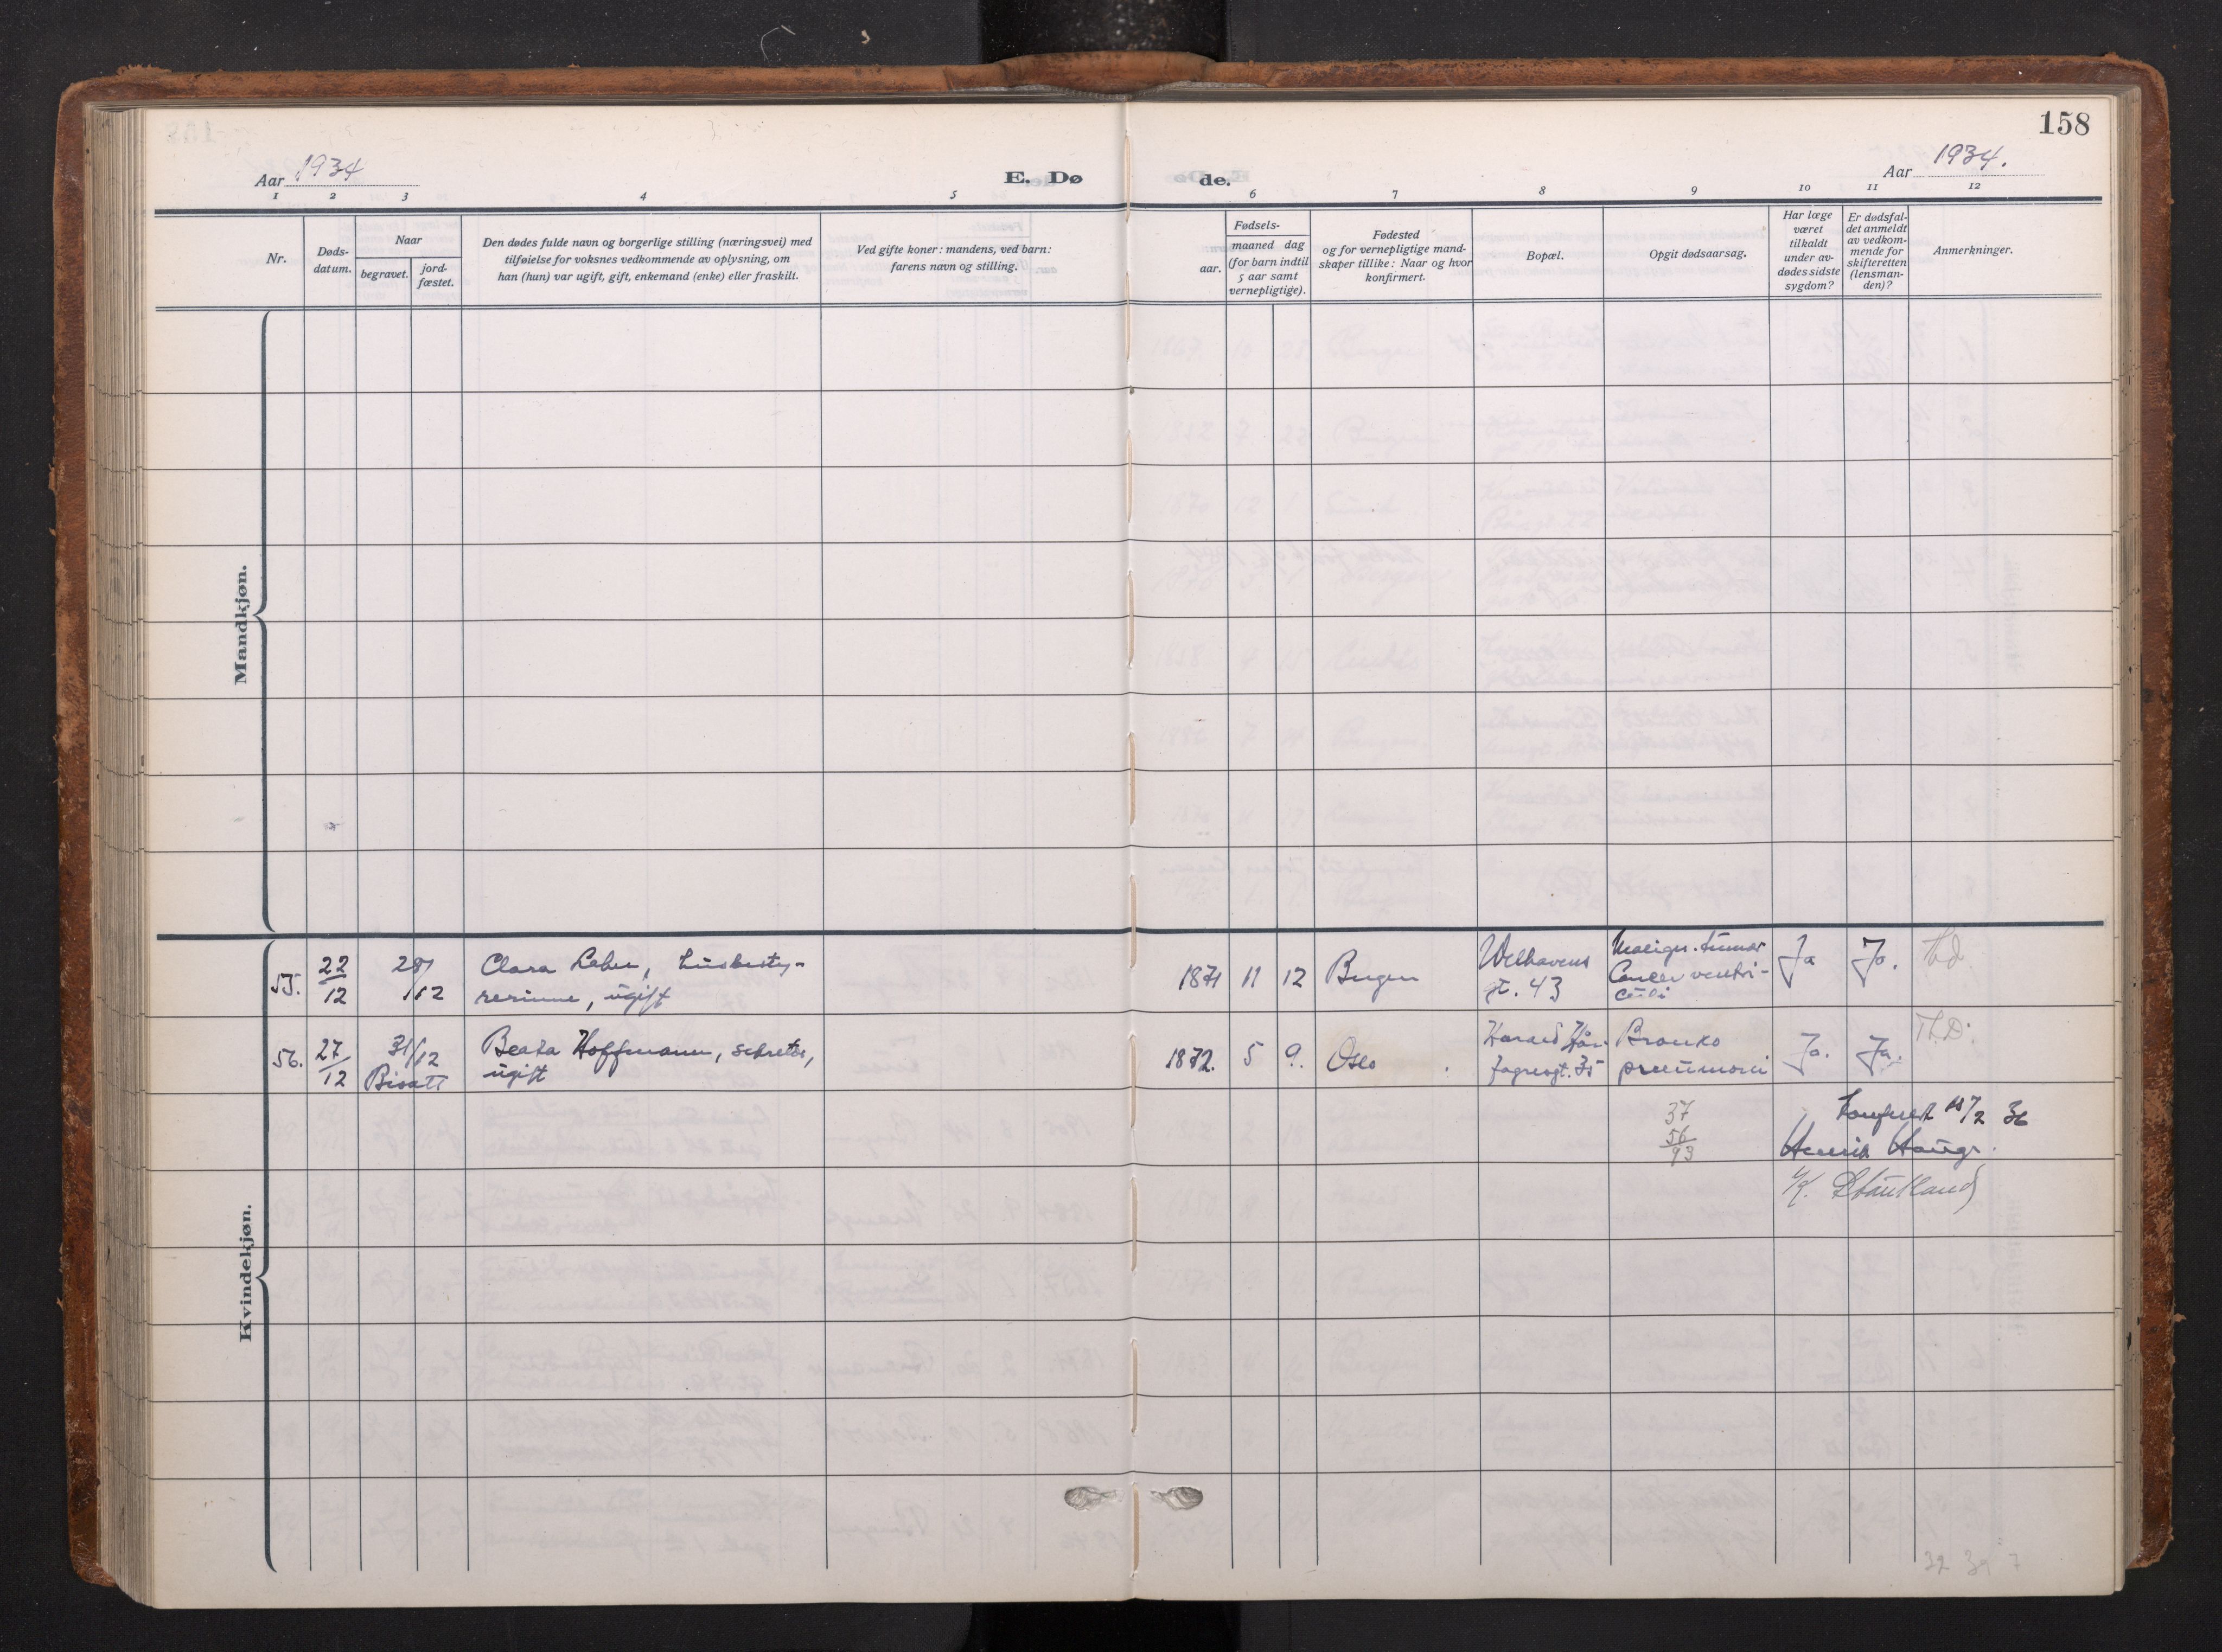 158
Aar 1934
E. Dø
de.
Aar 1934.
1 2 3 4 5 6 7 8 9 10 11 12
Nr.
Døds-
datum.
Naar
begravet.
jord-
fæstet.
Den dødes fulde navn og borgerlige stilling (næringsvei) med
tilføielse for voksnes vedkommende av oplysning, om
han (hun) var ugift, gift, enkemand (enke) eller fraskilt.
Ved gifte koner: mandens, ved barn:
farens navn og stilling.
Fødsels-
aar.
maaned dag
(for barn indtil
5 aar samt
vernepligtige).
Fødested
og for vernepligtige mand-
skaper tillike: Naar og hvor
konfirmert.
Bopæl.
Opgit dødsaarsag.
Har læge
været
tilkaldt
under av-
dødes sidste
sygdom?
Er dødsfal-
det anmeldt
av vedkom-
mende for
skifteretten
(lensman-
den)?
Anmerkninger.
Mandkjøn.
Kvindekjøn.
55.
22
12
28/
12
Clara
husbesty-
rerinne, ugift
1871 11 12 Bergen
Welhavens
gt. 43
Malign. tumor
Cancer ventri-
culi
Ja
Ja.
56.
27
12
31/12
Bisatt
Beata Hoffmann, sekretær,
ugift
1872. 5 9. Oslo
Harald Hår-
fagresgt. 35
Bronko
pneumoni
Ja.
Ja.
Th.D.
37
56
93
2 36